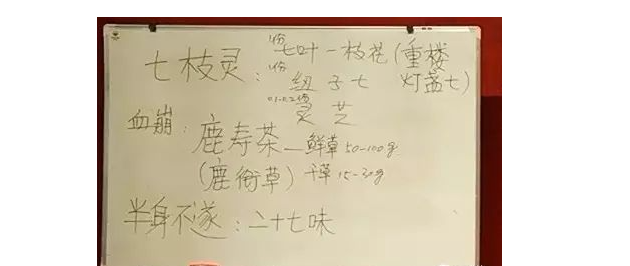 七枝灵：1份七叶一枝花（重楼
1份 纽子七 灯盏七）
0.1-0.2份 灵芝
血崩：鹿寿茶—鲜草50-100g
（鹿衔草）干草15-30g
半身不遂：二十七味